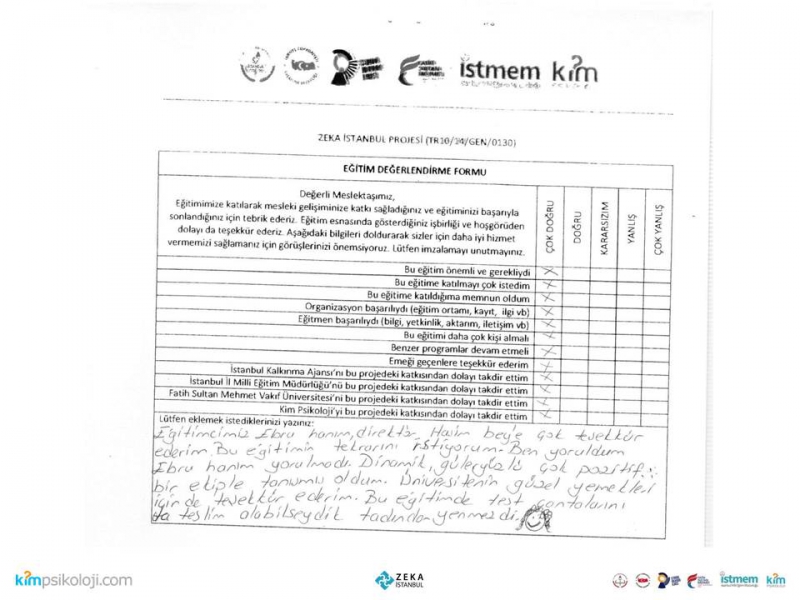 istmem kim
ZEKA İSTANBUL PROJESİ (TR10/14/GEN/0130)
EĞİTİM DEĞERLENDİRME FORMU
Değerli Meslektaşımız,
Eğitimimize katılarak mesleki gelişiminize katkı sağladığınız ve eğitiminizi başarıyla
sonlandığınız için tebrik ederiz. Eğitim esnasında gösterdiğiniz işbirliği ve hoşgörüden
dolayı da teşekkür ederiz. Aşağıdaki bilgileri doldurarak sizler için daha iyi hizmet
vermemizi sağlamanız için görüşlerinizi önemsiyoruz. Lütfen imzalamayı unutmayınız.
ÇOK DOĞRU
DOĞRU
KARARSIZIM
YANLIŞ
ÇOK YANLIŞ
Bu eğitim önemli ve gerekliydi X
Bu eğitime katılmayı çok istedim X
Bu eğitime katıldığıma memnun oldum X
Organizasyon başarılıydı (eğitim ortamı, kayıt, ilgi vb) X
Eğitmen başarılıydı (bilgi, yetkinlik, aktarım, iletişim vb) X
Bu eğitimi daha çok kişi almalı X
Benzer programlar devam etmeli X
Emeği geçenlere teşekkür ederim X
İstanbul Kalkınma Ajansı'nı bu projedeki katkısından dolayı takdir ettim X
İstanbul İl Milli Eğitim Müdürlüğü'nü bu projedeki katkısından dolayı takdir ettim X
Fatih Sultan Mehmet Vakıf Üniversitesi'ni bu projedeki katkısından dolayı takdir ettim X
Kim Psikoloji'yi bu projedeki katkısından dolayı takdir ettim X
Lütfen eklemek istediklerinizi yazınız:
Eğitimcimiz Ebru hanım, direktör Haşim bey'e çok teşekkür
ederim. Bu eğitimin tekrarını istiyorum. Ben yoruldum
Ebru hanım yorulmadı. Dinamik, güleryüzlü çok pozitif
bir ekiple tanımış oldum. Üniversitenin güzel yemekleri
için de teşekkür ederim. Bu eğitimde test çantalarını
da teslim alabilseydik tadından yenmezdi.
kimpsikoloji.com
ZEKA
İSTANBUL
istmem kim